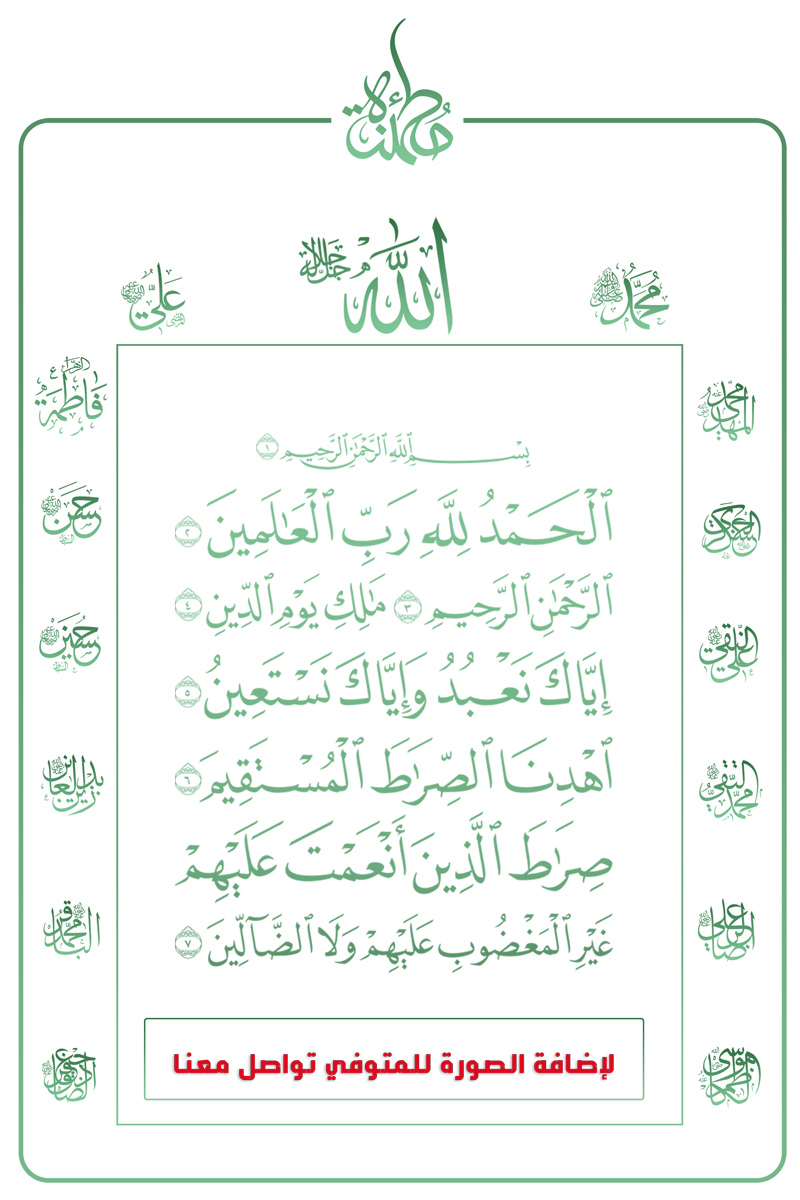 مطمئنة
الله جل جلاله
محمد
علي
فاطمة الزهراء
محمد المهدي
حسن
العسكري
حسين
علي النقي
زين العابدين
محمد التقي
محمد الباقر
علي الرضا
جعفر الصادق
موسى الكاظم
بِسْمِ ٱللَّهِ ٱلرَّحْمَٰنِ ٱلرَّحِيمِ ١
ٱلْحَمْدُ لِلَّهِ رَبِّ ٱلْعَٰلَمِينَ ٢
ٱلرَّحْمَٰنِ ٱلرَّحِيمِ ٣ مَٰلِكِ يَوْمِ ٱلدِّينِ ٤
إِيَّاكَ نَعْبُدُ وَإِيَّاكَ نَسْتَعِينُ ٥
ٱهْدِنَا ٱلصِّرَٰطَ ٱلْمُسْتَقِيمَ ٦
صِرَٰطَ ٱلَّذِينَ أَنْعَمْتَ عَلَيْهِمْ
غَيْرِ ٱلْمَغْضُوبِ عَلَيْهِمْ وَلَا ٱلضَّآلِّينَ ٧
لإضافة الصورة للمتوفي تواصل معنا